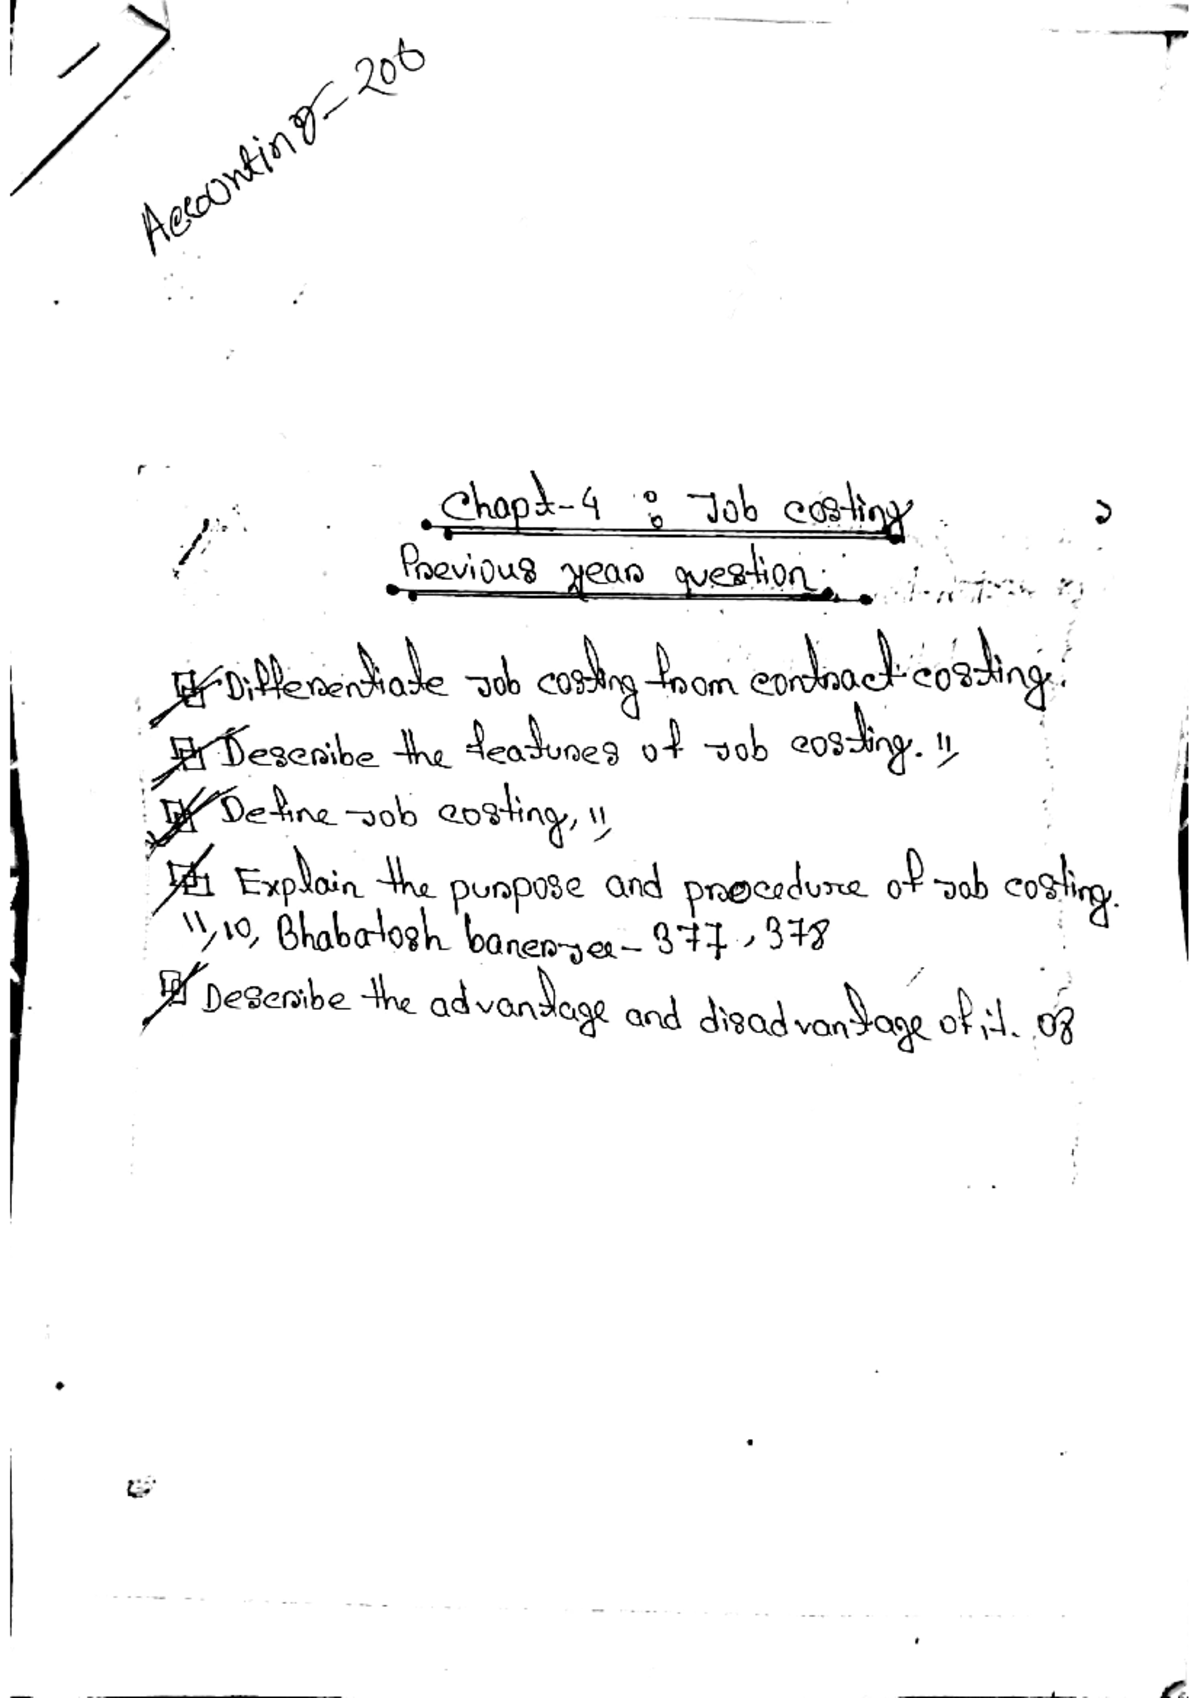 Accounting-206
Chapt-4 : Job costing
Previous year question.
Differentiate Job costing from contract costing.
Describe the features of Job costing. 11,
Define Job costing, 11,
Explain the purpose and procedure of Job costing.
11, 10, Bhabatosh banerjee - 377, 378
Describe the advantage and disadvantage of it. 08